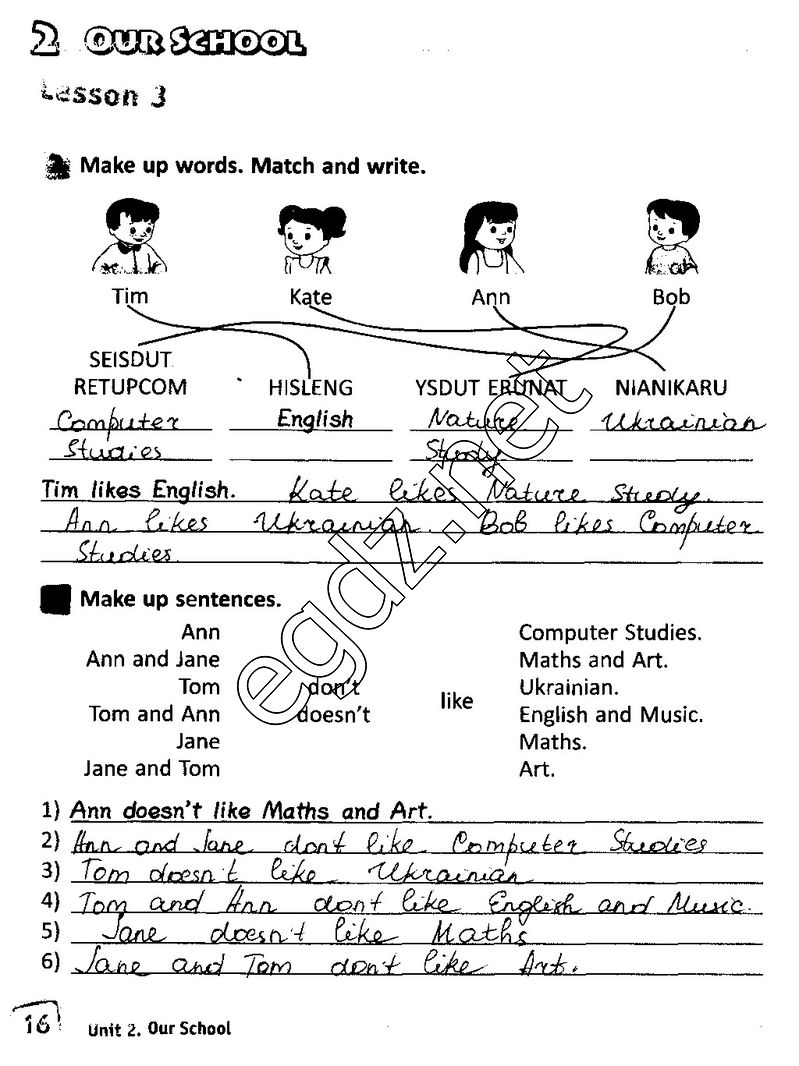 2 OUR SCHOOL
Lesson 3
Make up words. Match and write.
Tim Kate Ann Bob
SEISDUT
RETUPCOM HISLENG YSDUT ERUNAT NIANIKARU
Computer English Nature Ukrainian
Studies Study
Tim likes English. Kate likes Nature Study.
Ann likes Ukrainian. Bob likes Computer
Studies.
Make up sentences.
Ann Computer Studies.
Ann and Jane Maths and Art.
Tom don't Ukrainian.
like
Tom and Ann doesn't English and Music.
Jane Maths.
Jane and Tom Art.
egdz.net
1) Ann doesn't like Maths and Art.
2) Ann and Jane don't like Computer Studies
3) Tom doesn't like Ukrainian
4) Tom and Ann don't like English and Music.
5) Jane doesn't like Maths
6) Jane and Tom don't like Art.
16 Unit 2. Our School